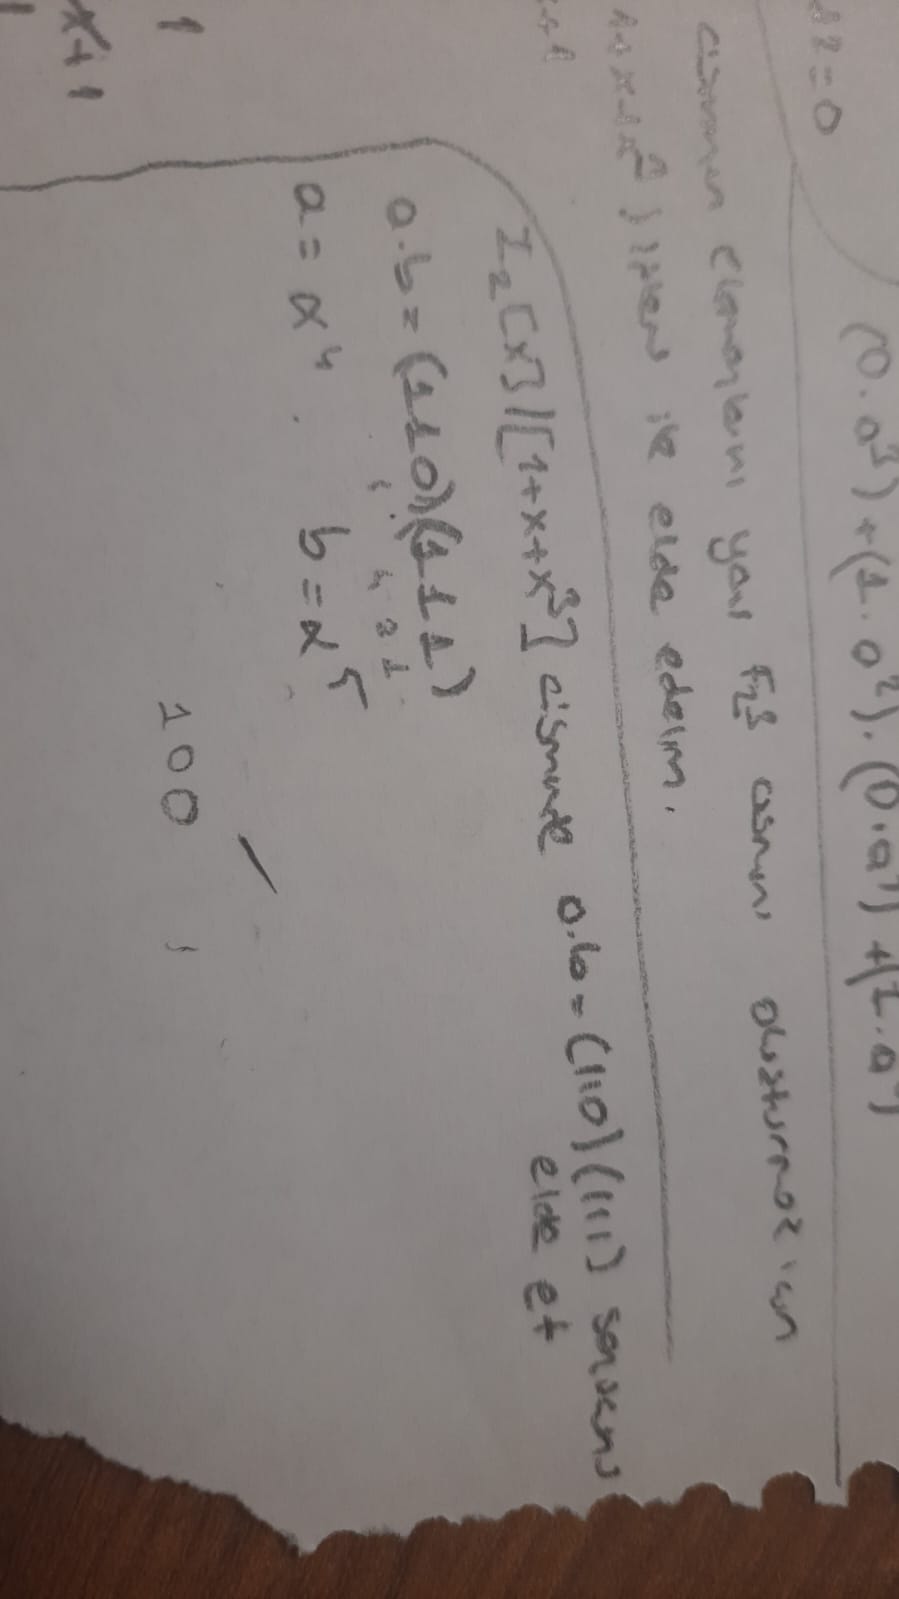 (0.a³)+(1.a²).(0.a¹)+(1.a
12=0
cismının elemanlarını yani F₂3 cismini oluşturmak için
1+x+x² ) işlem ile elde edelim.
+1
Z₂[x]/[1+x+x³] cisminde a.b=(110)(111) sonucunu
elde et
a.b=(110)(111)
4 2 1
a=α⁴. b=α⁵
100
1
x+1